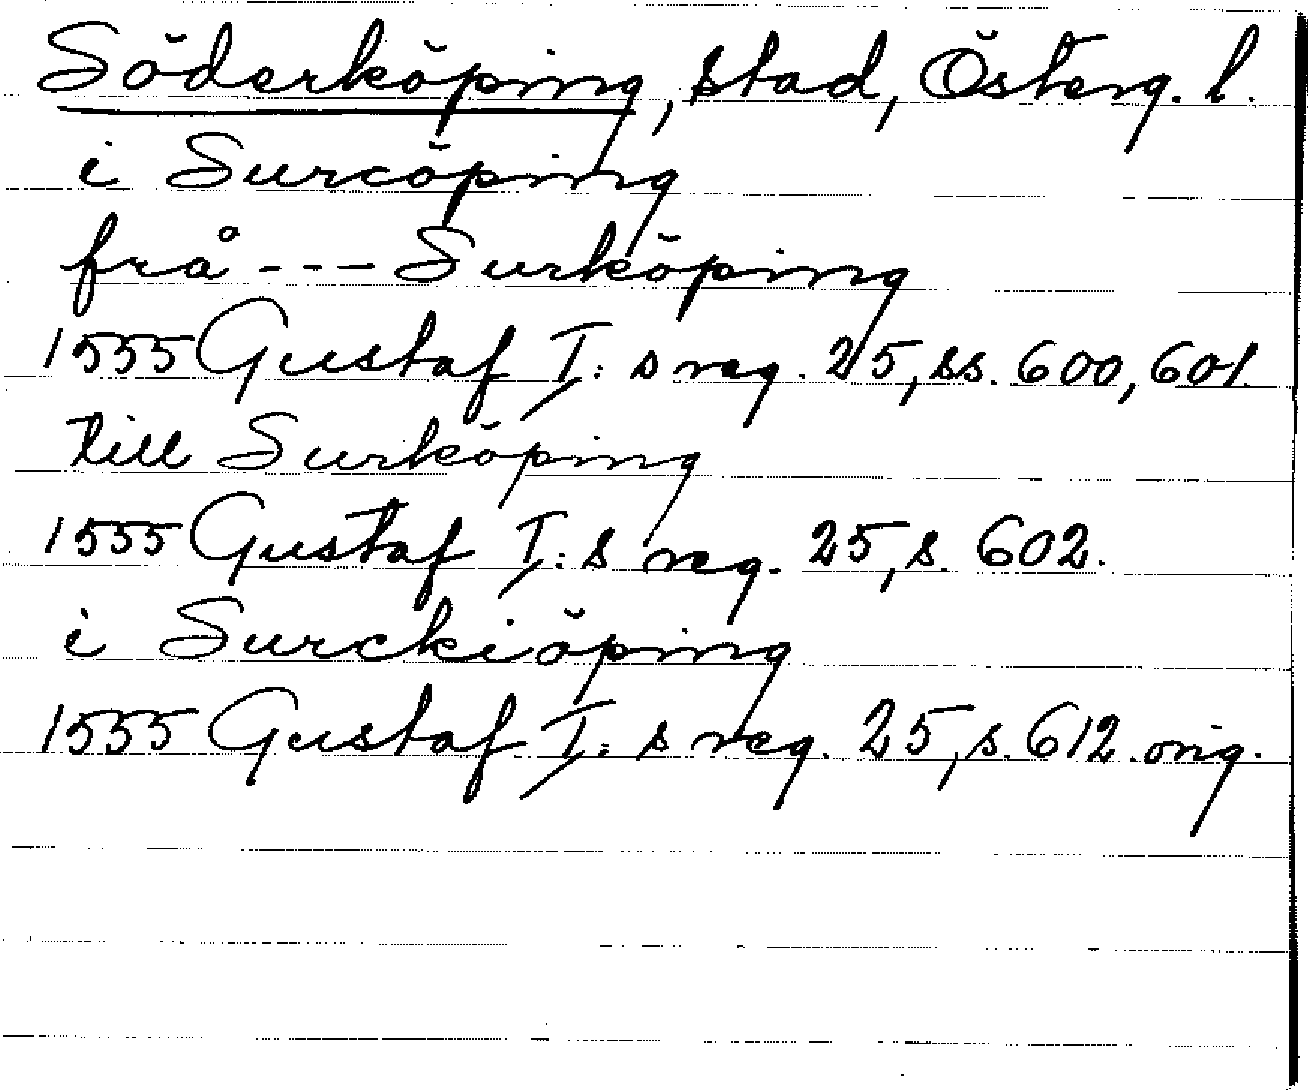 Söderköping, stad, Österg. l.
i Surcöping
frå --- Surköping
1555 Gustaf I:s reg. 25, ss. 600, 601.
till Surköping
1555 Gustaf I:s reg. 25, s. 602.
i Surckiöping
1555 Gustaf I:s reg. 25, s. 612. orig.